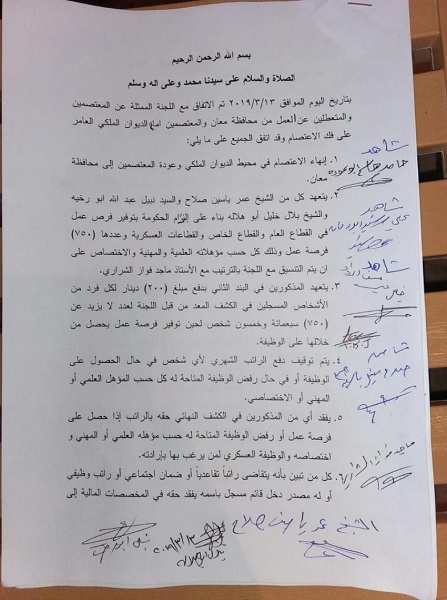 بسم الله الرحمن الرحيم
الصلاة والسلام على سيدنا محمد وعلى اله وسلم
بتاريخ اليوم الموافق ٢٠١٩/٣/١٣ تم الاتفاق مع اللجنة الممثلة عن المعتصمين
والمتعطلين عن العمل من محافظة معان والمعتصمين امام الديوان الملكي العامر
على فك الاعتصام وقد اتفق الجميع على ما يلي:
شاهد
١. إنهاء الاعتصام في محيط الديوان الملكي وعودة المعتصمين إلى محافظة
معان.
٢. يتعهد كل من الشيخ عمر ياسين صلاح والسيد نبيل عبد الله ابو رخيه
شاهد
والشيخ بلال خليل أبو هلاله بناء على الزام الحكومة بتوفير فرص عمل
في القطاع العام والقطاع الخاص والقطاعات العسكرية وعددها (٧٥٠)
فرصة عمل وذلك كل حسب مؤهلاته العلمية والمهنية والاختصاص على
شاهد
ان يتم التنسيق مع اللجنة بالترتيب مع الأستاذ ماجد فواز الشراري.
٣. يتعهد المذكورين في البند الثاني بدفع مبلغ (٢٠٠) دينار لكل فرد من
الأشخاص المسجلين في الكشف المعد من قبل اللجنة لعدد لا يزيد عن
(٧٥٠) سبعمائة وخمسون شخص لحين توفير فرصة عمل يحصل من
خلالها على الوظيفة.
٤. يتم توقيف دفع الراتب الشهري لأي شخص في حال الحصول على
الوظيفة أو في حال رفض الوظيفة المتاحة له كل حسب المؤهل العلمي أو
المهني أو الاختصاصي.
٥. يفقد أي من المذكورين في الكشف النهائي حقه بالراتب إذا حصل على
فرصة عمل أو رفض الوظيفة المتاحة له حسب مؤهله العلمي أو المهني و
اختصاصه والوظيفة العسكري لمن يرغب بها بإرادته.
٦. كل من تبين بأنه يتقاضى راتباً تقاعدياً أو ضمان اجتماعي أو راتب وظيفي
أو له مصدر دخل قائم مسجل باسمه يفقد حقه في المخصصات المالية إلى
الشيخ عمر ياسين صلاح